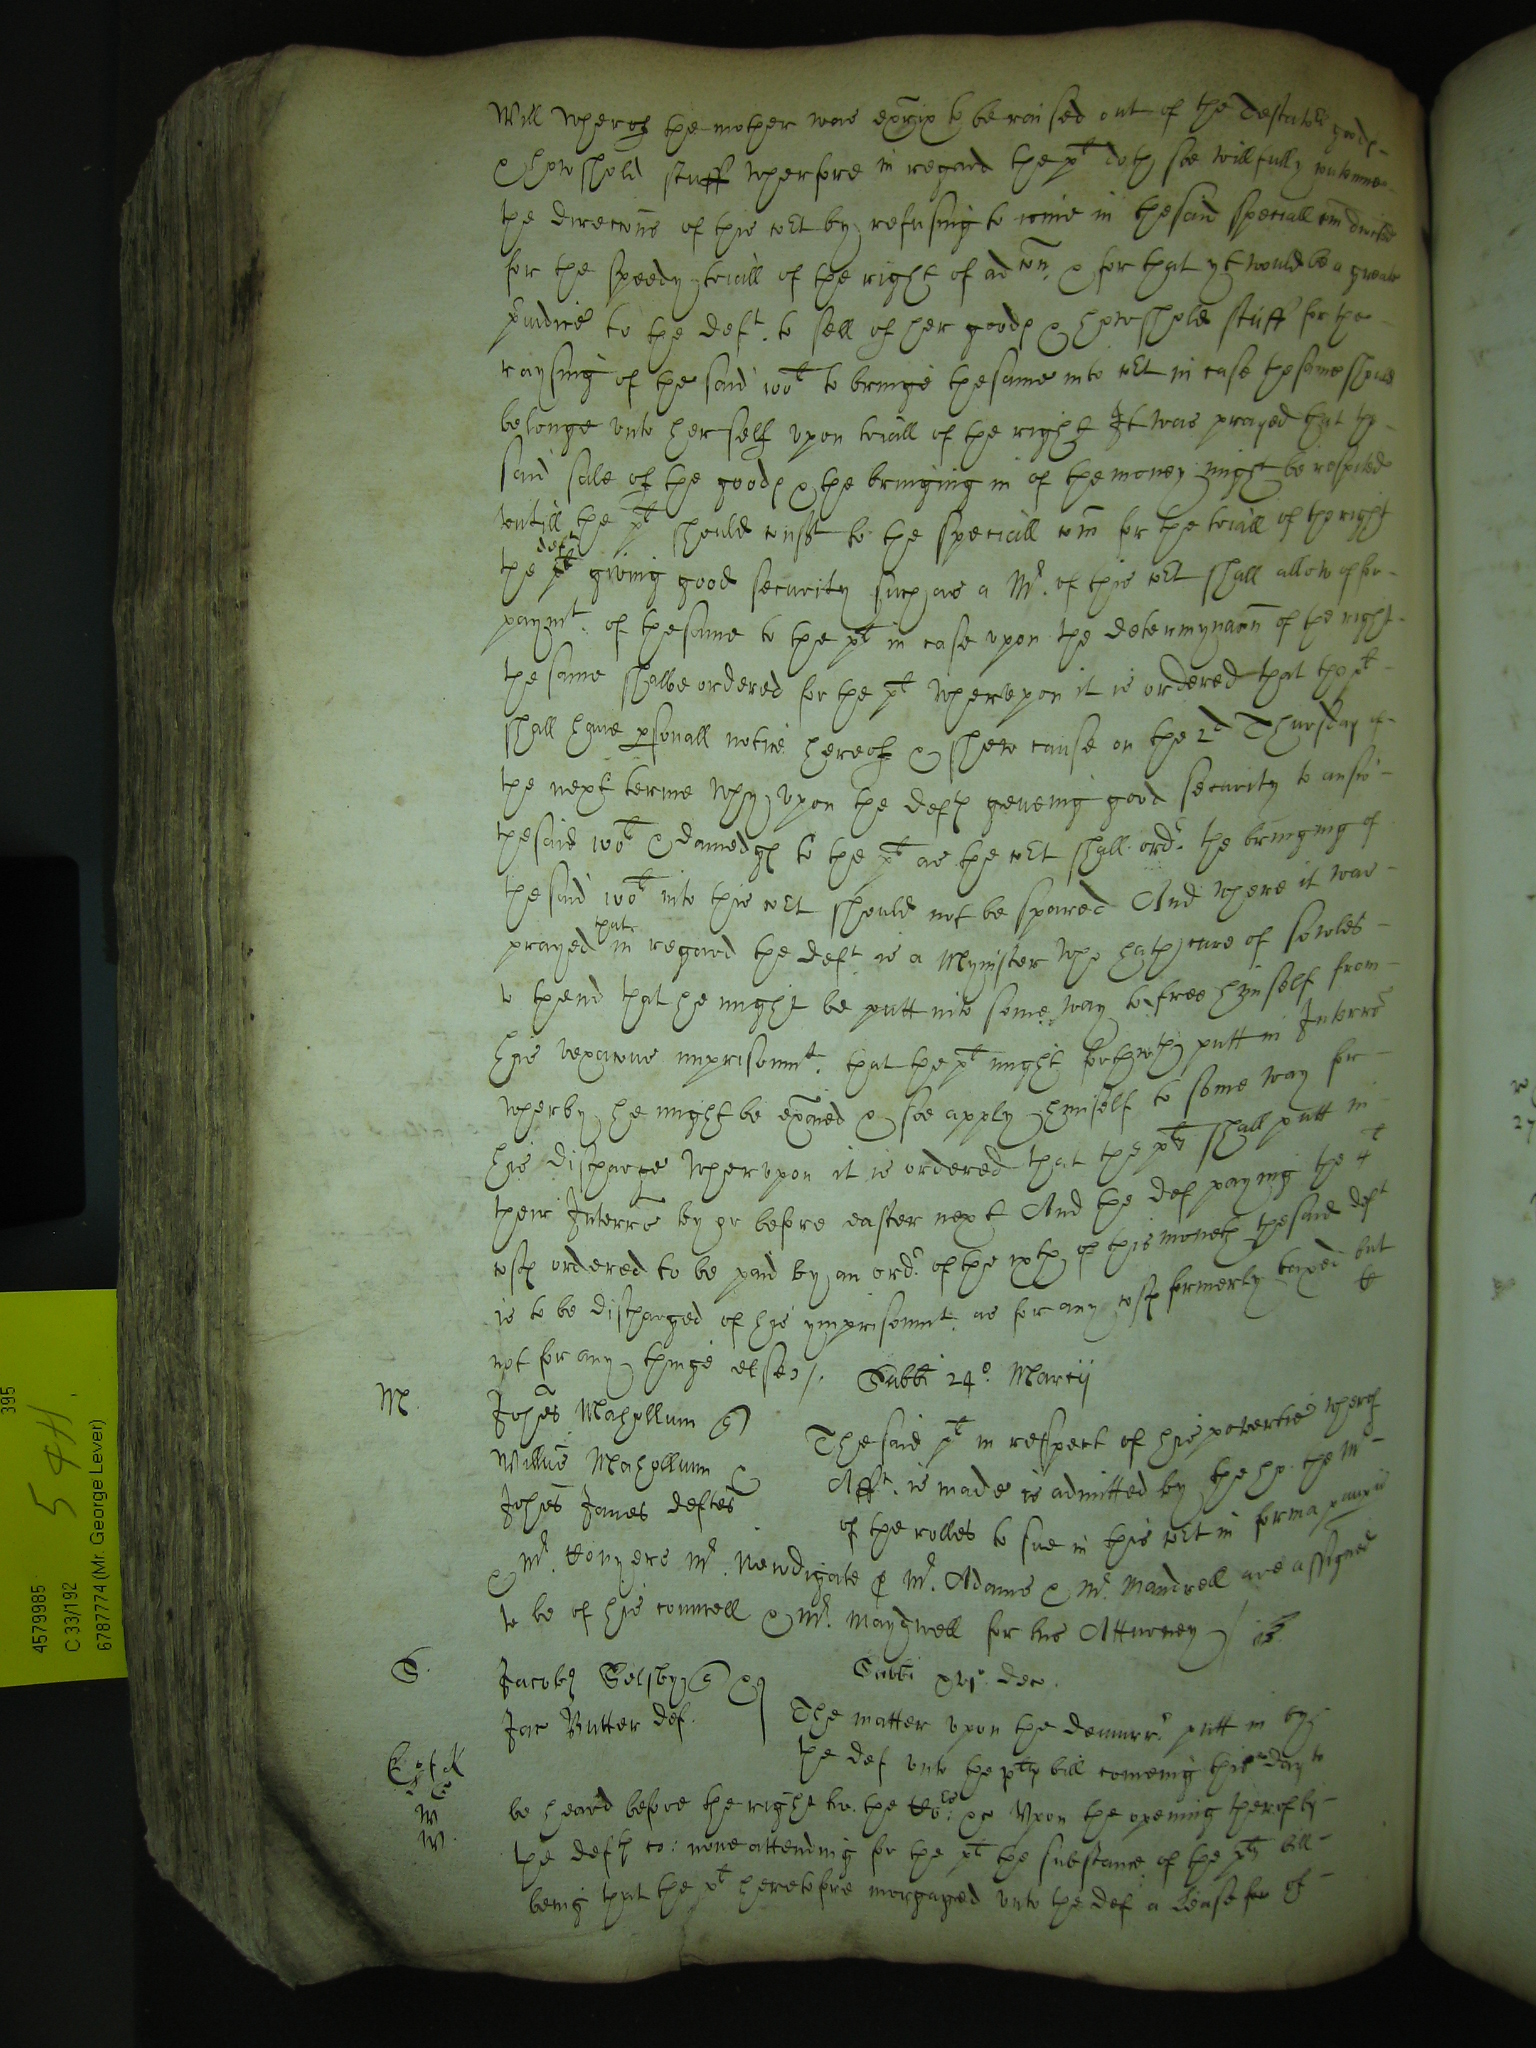 will wherof the mother was exrix to be raised out of the testators goods
& howshold stuff wherfore in regard the plt doth soe willfully contemne
the direccons of this cort by refusing to ioine in the said speciall com directed
for the speedy triall of the right of adcon & for that yt would be a greate
priudice to the deft to sell of her goods & howshold stuff for the
raysing of the said 100l to bringe the same into cort in case the same should
belonge unto herself upon triall of the right It was prayed that the
said sale of the goods & the bringing in of the money might be respited
untill the plt should consent to the speciall com for the triall of the right
the deft giving good security such as a Mr. of this cort shall allow of for
paymt. of the same to the plt in case upon the determynacon of the right
the same shalbe ordered for the plt wherupon it is ordered that the plt
shall have psonall notice hereof & shew cause on the 2d Thursday of
the next terme why upon the defts geveing good security to answ
the said 100l & damedgs to the plt as the cort shall ordr. the bringing of
the said 100l into this cort should not be spared And where it was
prayed that in regard the deft is a Mynister who hath cure of sowles
to thend that he might be putt into some way to free himself from
his vexacous imprisonmt. that the plt might forthwth putt in Interrs
wherby he might be exaied & soe apply himself to some way for
his discharge wherupon it is ordered that the plts shall putt in
their Interrs by or before easter next And the def paying the 4l
costs ordered to be paid by an ordr. of the ixth of this moneth the said deft
is to be discharged of his ymprisonmt. as for any costs formerly taxed but
not for any thinge else /. Sabbti 24o. Marcij
M. Johes Mahollum q
Willus Mahollum &
Johes James deftes
The said plt in respect of his povertie wherof
Afft. is made is admitted by the ho. the Mr
of the rolles to sue in this cort in forma paupis
& Mr. Conyers Mr. Newdigate & Mr. Adams & Mr. Mandrell are assigned
to be of his councell & Mr. Maydwell for his Attorney /
S. Jacobs Selsby q
Jac Butter def.
Sabbti xvjo. dec.
The matter upon the demurrr putt in by
the def unto the plts bill comeing this day to
be heard before the right ho. the &c Upon the opening therof by
the defts co: none attending for the plt the substance of the plts bill
being that the plt heretofore morgaged unto the def a Lease for of
395
544
4579985
C 33/192
6787774 (Mr. George Lever)